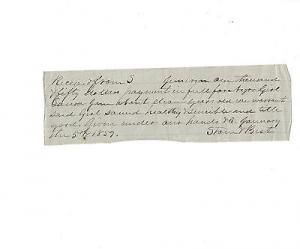 Received from S Jemison one thousand
& fifty dollars payment in full for a negro Girl
about eleven years old we warrant
said Girl sound healthy & sensible and title
good Given under our hands this January
the 5th 1857.